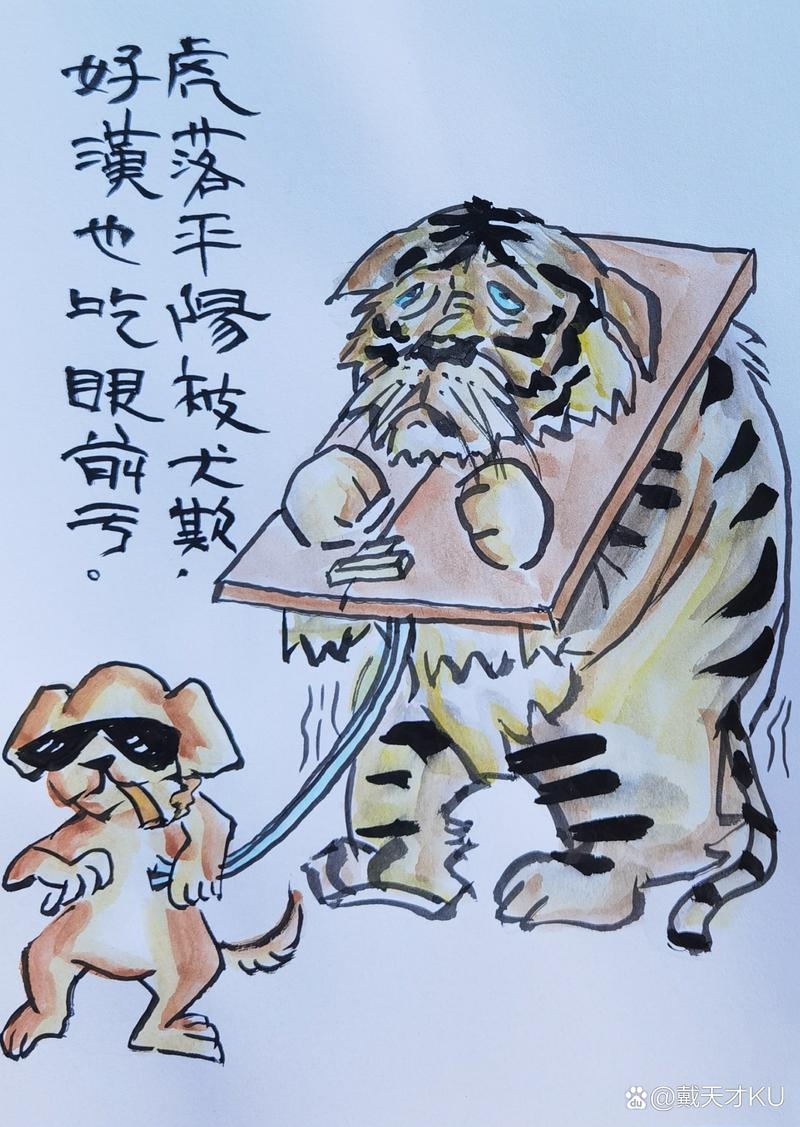 虎落平陽被犬欺.
好漢也吃眼前亏。
@戴天才KU